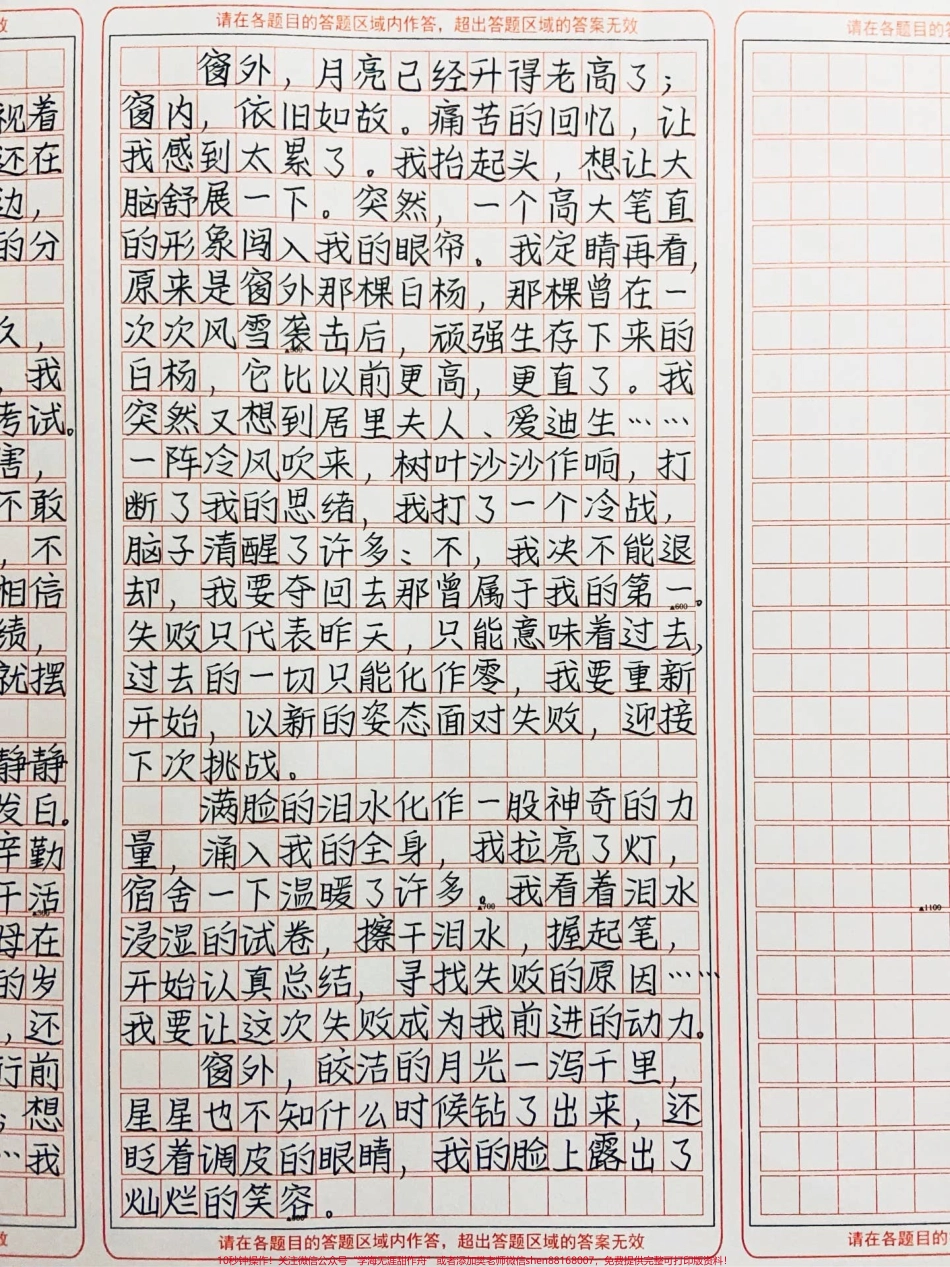 请在各题目的答题区域内作答，超出答题区域的答案无效
窗外，月亮已经升得老高了；
窗内，依旧如故。痛苦的回忆，让
我感到太累了。我抬起头，想让大
脑舒展一下。突然，一个高大笔直
的形象闯入我的眼帘。我定睛再看，
原来是窗外那棵白杨，那棵曾在一
次次风雪袭击后，顽强生存下来的
白杨，它比以前更高，更直了。我
突然又想到居里夫人、爱迪生……
一阵冷风吹来，树叶沙沙作响，打
断了我的思绪，我打了一个冷战，
脑子清醒了许多：不，我决不能退
却，我要夺回去那曾属于我的第一。
▲600
失败只代表昨天，只能意味着过去，
过去的一切只能化作零，我要重新
开始，以新的姿态面对失败，迎接
下次挑战。
满脸的泪水化作一股神奇的力
量，涌入我的全身，我拉亮了灯，
宿舍一下温暖了许多。我看着泪水
▲700
浸湿的试卷，擦干泪水，握起笔，
开始认真总结，寻找失败的原因……
我要让这次失败成为我前进的动力。
窗外，皎洁的月光一泻千里，
星星也不知什么时候钻了出来，还
眨着调皮的眼睛，我的脸上露出了
灿烂的笑容。
请在各题目的答题区域内作答，超出答题区域的答案无效
效
视着
还在
边，
的分
久，
，我
考试。
害，
不敢
，不
相信
绩，
就摆
静静
发白。
辛勤
干活
母在
的岁
，还
行前
想
…我
效
请在各题目的答
▲1100
请在各题目的
10秒钟操作！关注微信公众号“学海无涯甜作舟”或者添加吴老师微信shen88168007，免费提供完整可打印版资料！